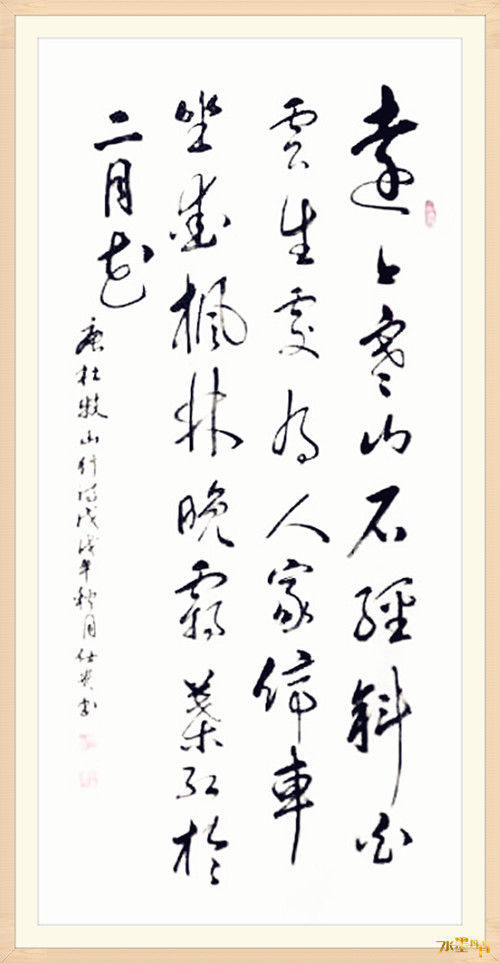 遠上寒山石經斜白
雲生處为人家停車
坐愛楓林晚霜葉紅於
二月花
唐杜牧山行詩戊戌年秋月仕贵书
水墨丹青